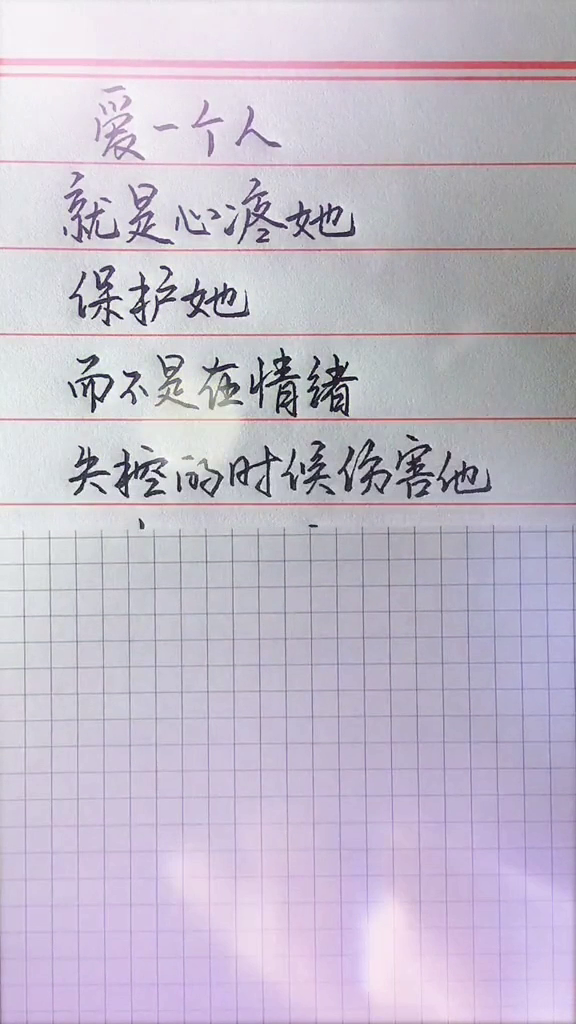 爱一个人
就是心疼她
保护她
而不是在情绪
失控的时候伤害他